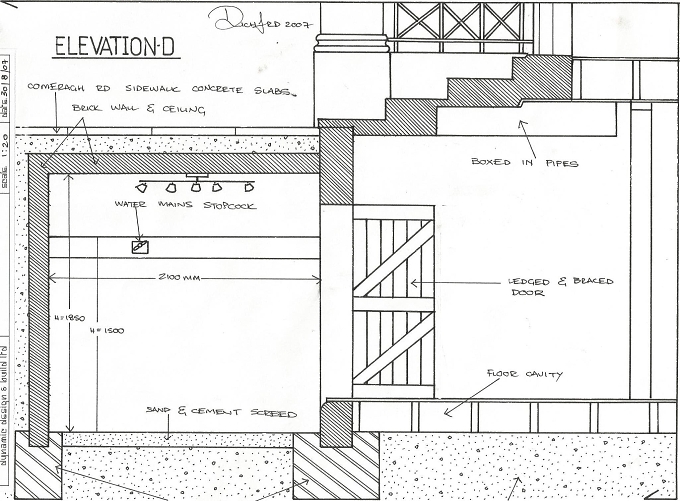 Rchfrd 2007
ELEVATION·D
COMERAGH RD SIDEWALK CONCRETE SLABS.
BRICK WALL & CEILING
BOXED IN PIPES
WATER MAINS STOPCOCK
2100 MM
LEDGED & BRACED
DOOR
H=1850
H=1500
FLOOR CAVITY
SAND & CEMENT SCREED
DATE 30/8/07
SCALE 1:20
dynamic design & build ltd